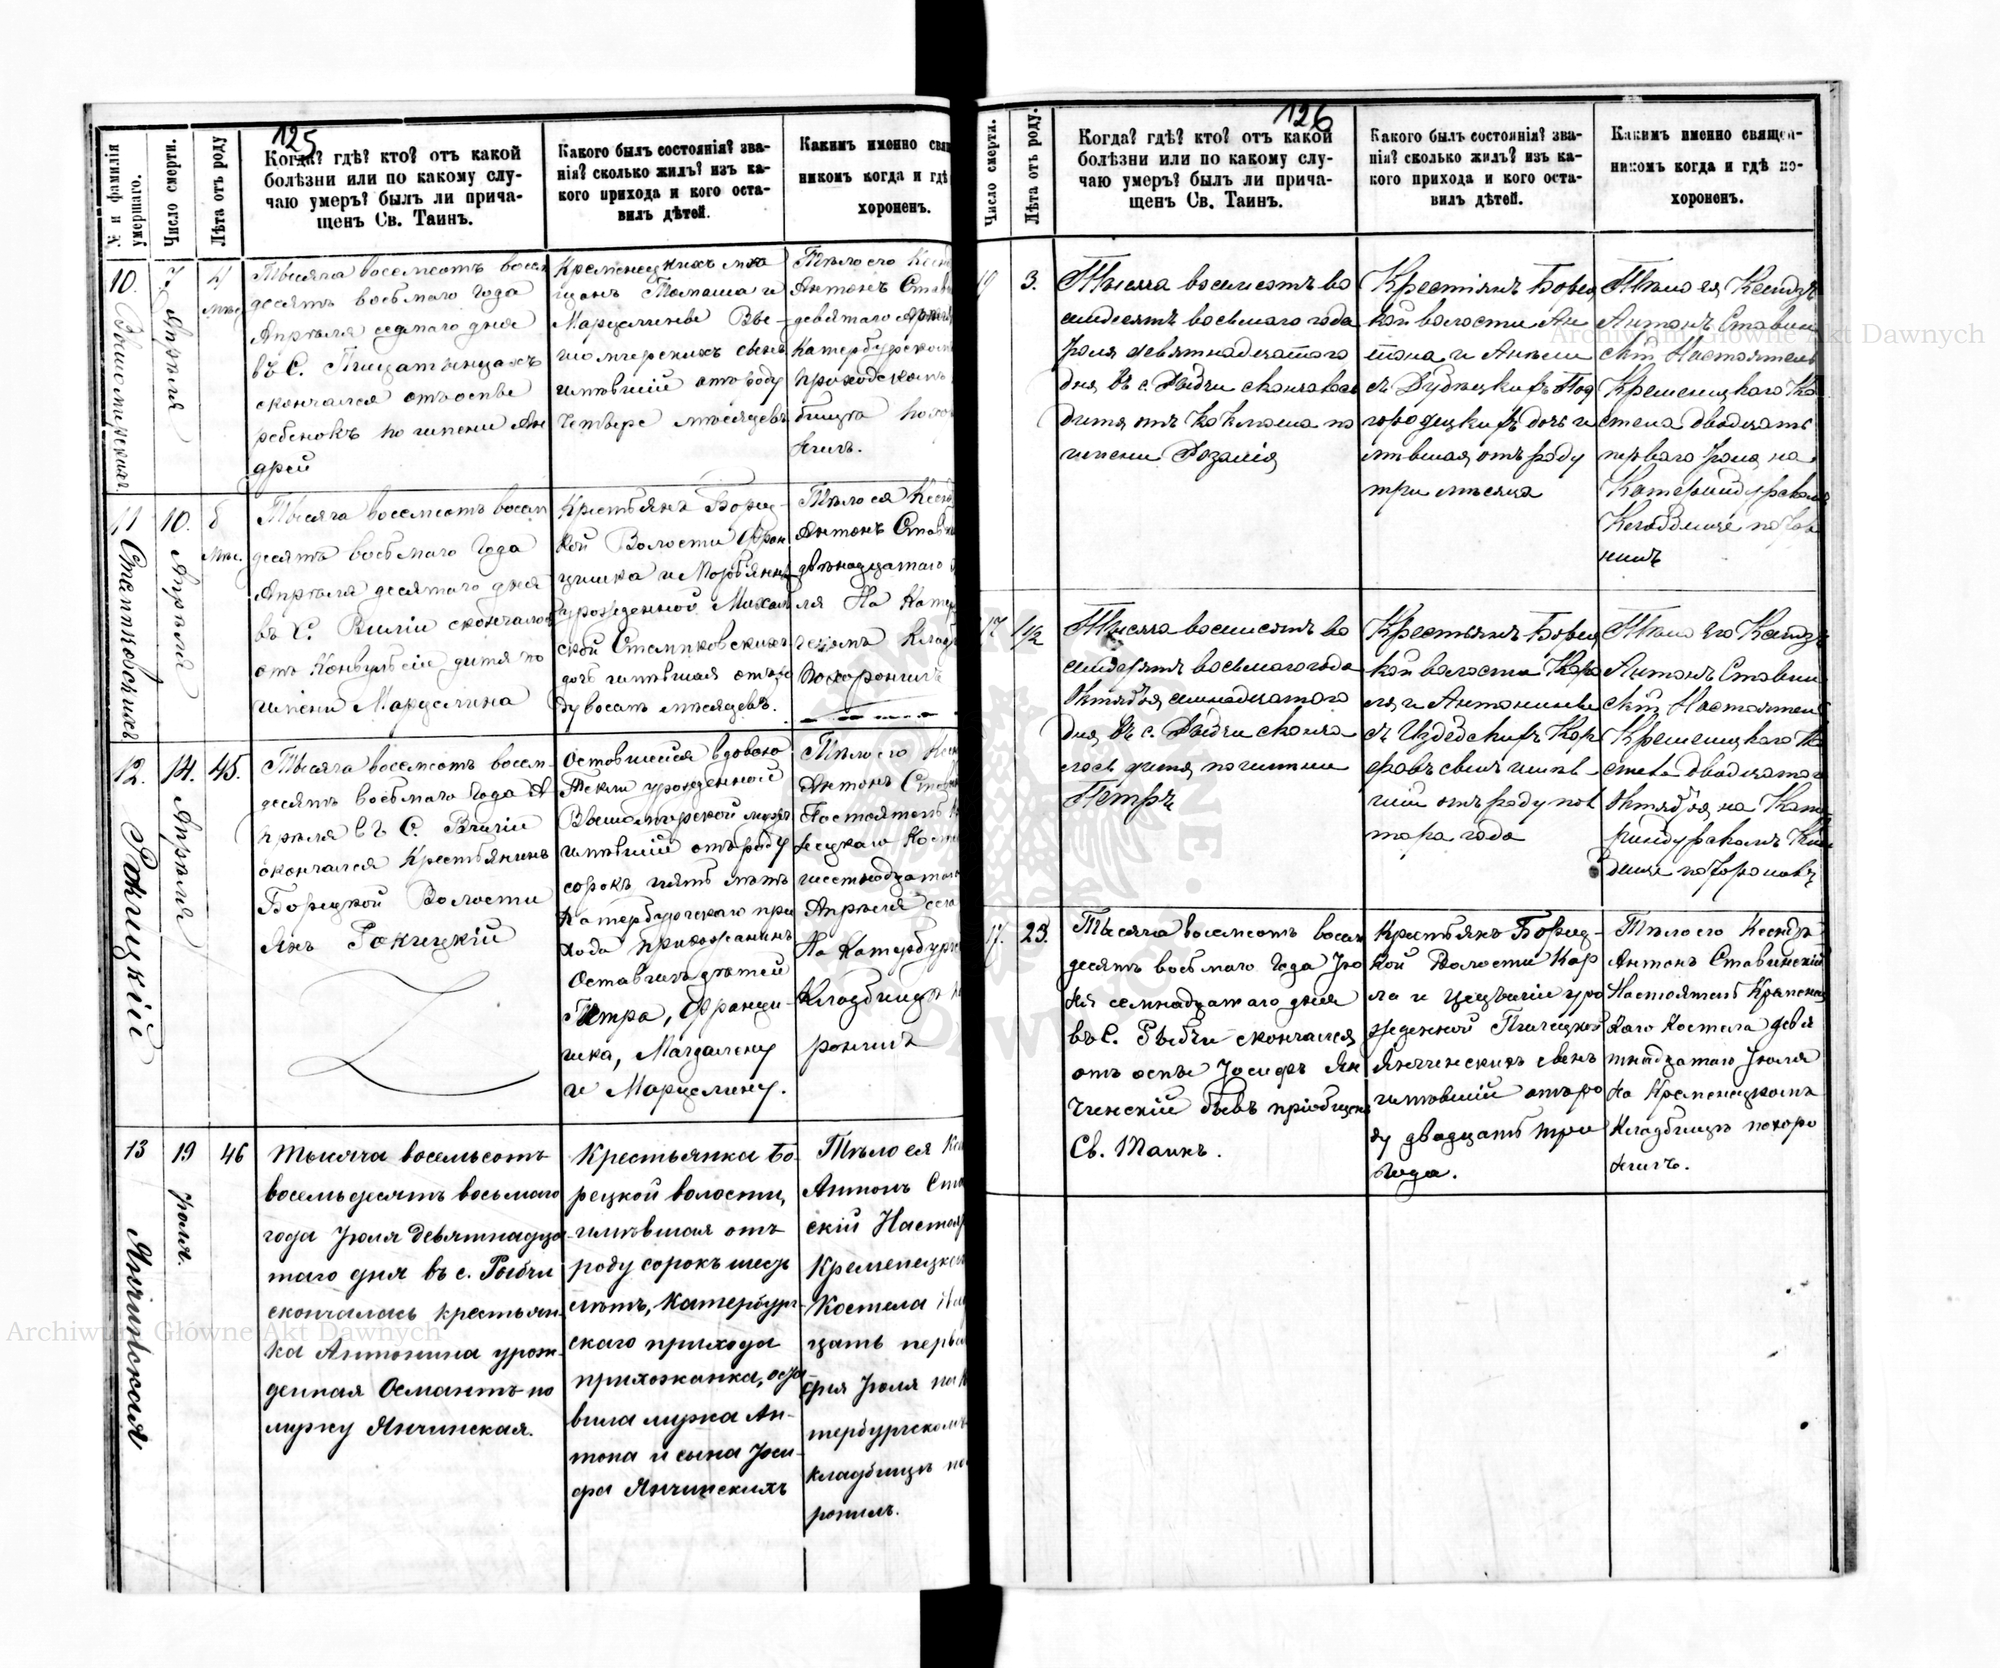 125
№ и фамилія умершаго.
Число смерти.
Лѣта отъ роду
Когда? гдѣ? кто? отъ какой
болѣзни или по какому слу-
чаю умеръ? былъ ли прича-
щенъ Св. Таинъ.
Какого былъ состоянія? зва-
нія? сколько жилъ? изъ ка-
кого прихода и кого оста-
вилъ дѣтей.
Какимъ именно свя
никомъ когда и гдѣ
хороненъ.
10.
7 Апрѣля
Тысяча восемсотъ восем
десятъ восьмаго года
Апрѣля седмаго дня
въ С.
скончался отъ оспы
ребенокъ по имени Ан
дрей
Кременецкихъ мѣ
щанъ Томаша и
Марцелины
имѣвшій отъ роду
четыре мѣсяцевъ
Тѣло его Ксен
Антонъ Став
девятаго
Катербургском
приходскомъ
11
Стемпковскихъ
10. Апрѣля
6 Мѣс.
Тысяча восемсотъ восем
десятъ восьмаго года
Апрѣля десятаго дня
въ С. Виліи скончалос
отъ Конвульсіи дитя по
имени Марцелина
Крестьянъ Борец-
кой Волости Фран
цишка и Марьянны
урожденной
Стемпковскихъ
дочь имѣвшая отъ ро
ду восемъ мѣсяцевъ.
Тѣло ея Ксен
Антонъ Став
двѣнадцатаго
ля На Катер
Клад
похоронилъ
12.
Рокицкій
14. Апрѣля
45.
Тысяча восемсотъ восем-
десятъ восьмаго года А
прѣля въ С. Виліи
скончался Крестьянинъ
Борецкой Волости
Янъ Рокицкій
оставшейся вдовою
Текли урожденной
мужъ
имѣвшій отъ роду
сорокъ пять лѣтъ
Катербургскаго при
хода прихожанинъ
Оставилъ дѣтей
Петра, Франци-
шка, Магдалену
и Марцелину.
Тѣло его Ксен
Антонъ Став
Настоятель К
нецкаго Косте
шестнадцатаго
Апрѣля сего
На Катербург
Кладбищѣ
ронилъ
13
Янчинская
19 Іюля.
46
Тысяча восемьсотъ
восемьдесятъ восьмаго
года Іюля девятнадца
таго дня въ с. Рыбчи
скончалась крестьян
ка Антонина урож
денная Османтъ по
мужу Янчинская.
Крестьянка Бо-
рецкой волости,
имѣвшая отъ
роду сорокъ шесть
лѣтъ, Катербург-
скаго прихода
прихожанка, оста
вила мужа Ан-
тона и сына Іоси-
фа Янчинскихъ
Тѣло ея Ксе
Антонъ Ста
скій Настоя
Кременецкаго
Костела два
цать перва
дня Іюля на К
тербургскомъ
кладбищѣ по
ронилъ.
126
Число смерти.
Лѣта отъ роду.
Когда? гдѣ? кто? отъ какой
болѣзни или по какому слу-
чаю умеръ? былъ ли прича-
щенъ Св. Таинъ.
Какого былъ состоянія? зва-
нія? сколько жилъ? изъ ка-
кого прихода и кого оста-
вилъ дѣтей.
Какимъ именно священ-
никомъ когда и гдѣ по-
хороненъ.
3.
Тысяча восемсотъ во
семдесятъ восьмаго года
Іюля девятнадцатого
дня, въ с. Рыбчи скончалось
дитя отъ Коклюша по
имени Розалія
Крестіянъ
кой волости Ан
тона и
дочь и
мѣвшая отъ роду
три мѣсяца
Тѣло ея Ксендзъ
Антонъ Ставин
скій Настоятель
Кременецкого Ко
стела двадцать
перваго Іюля на
нилъ
17
1½
Тысяча восемсотъ во
семдесятъ восьмаго года
Октября семнадцатого
дня, въ с. Рыбчи сконча
лось дитя по имени
Петръ
Крестьянъ
кой волости Каро
ля и Антонины
имѣв
шій отъ роду пол
тора года
Тѣло его Ксендзъ
Антонъ Ставин
скій Настоятель
Кременецкого Ко
стела двадцатого
Октября на Кате
17.
23.
Тысяча восемсотъ восем
десятъ восьмаго года Ію
ля семнадцатаго дня
въ С. Рыбчи скончался
отъ оспы Іосифъ Ян
чинскій бывъ пріобщенъ
Св. Таинъ.
Крестьянъ Борец-
кой Волости Кар
ла и Цециліи уро
жденной
Янчинскихъ сынъ
имѣвшій отъ ро
ду двадцать три
года.
Тѣло его Ксендзъ
Антонъ Ставинскій
Настоятель Кременец
каго Костела девя
тнадцатаго Іюля
На Кременецкомъ
Кладбищѣ похоро
нилъ.
Archiwum Główne Akt Dawnych
Archiwum Główne Akt Dawnych